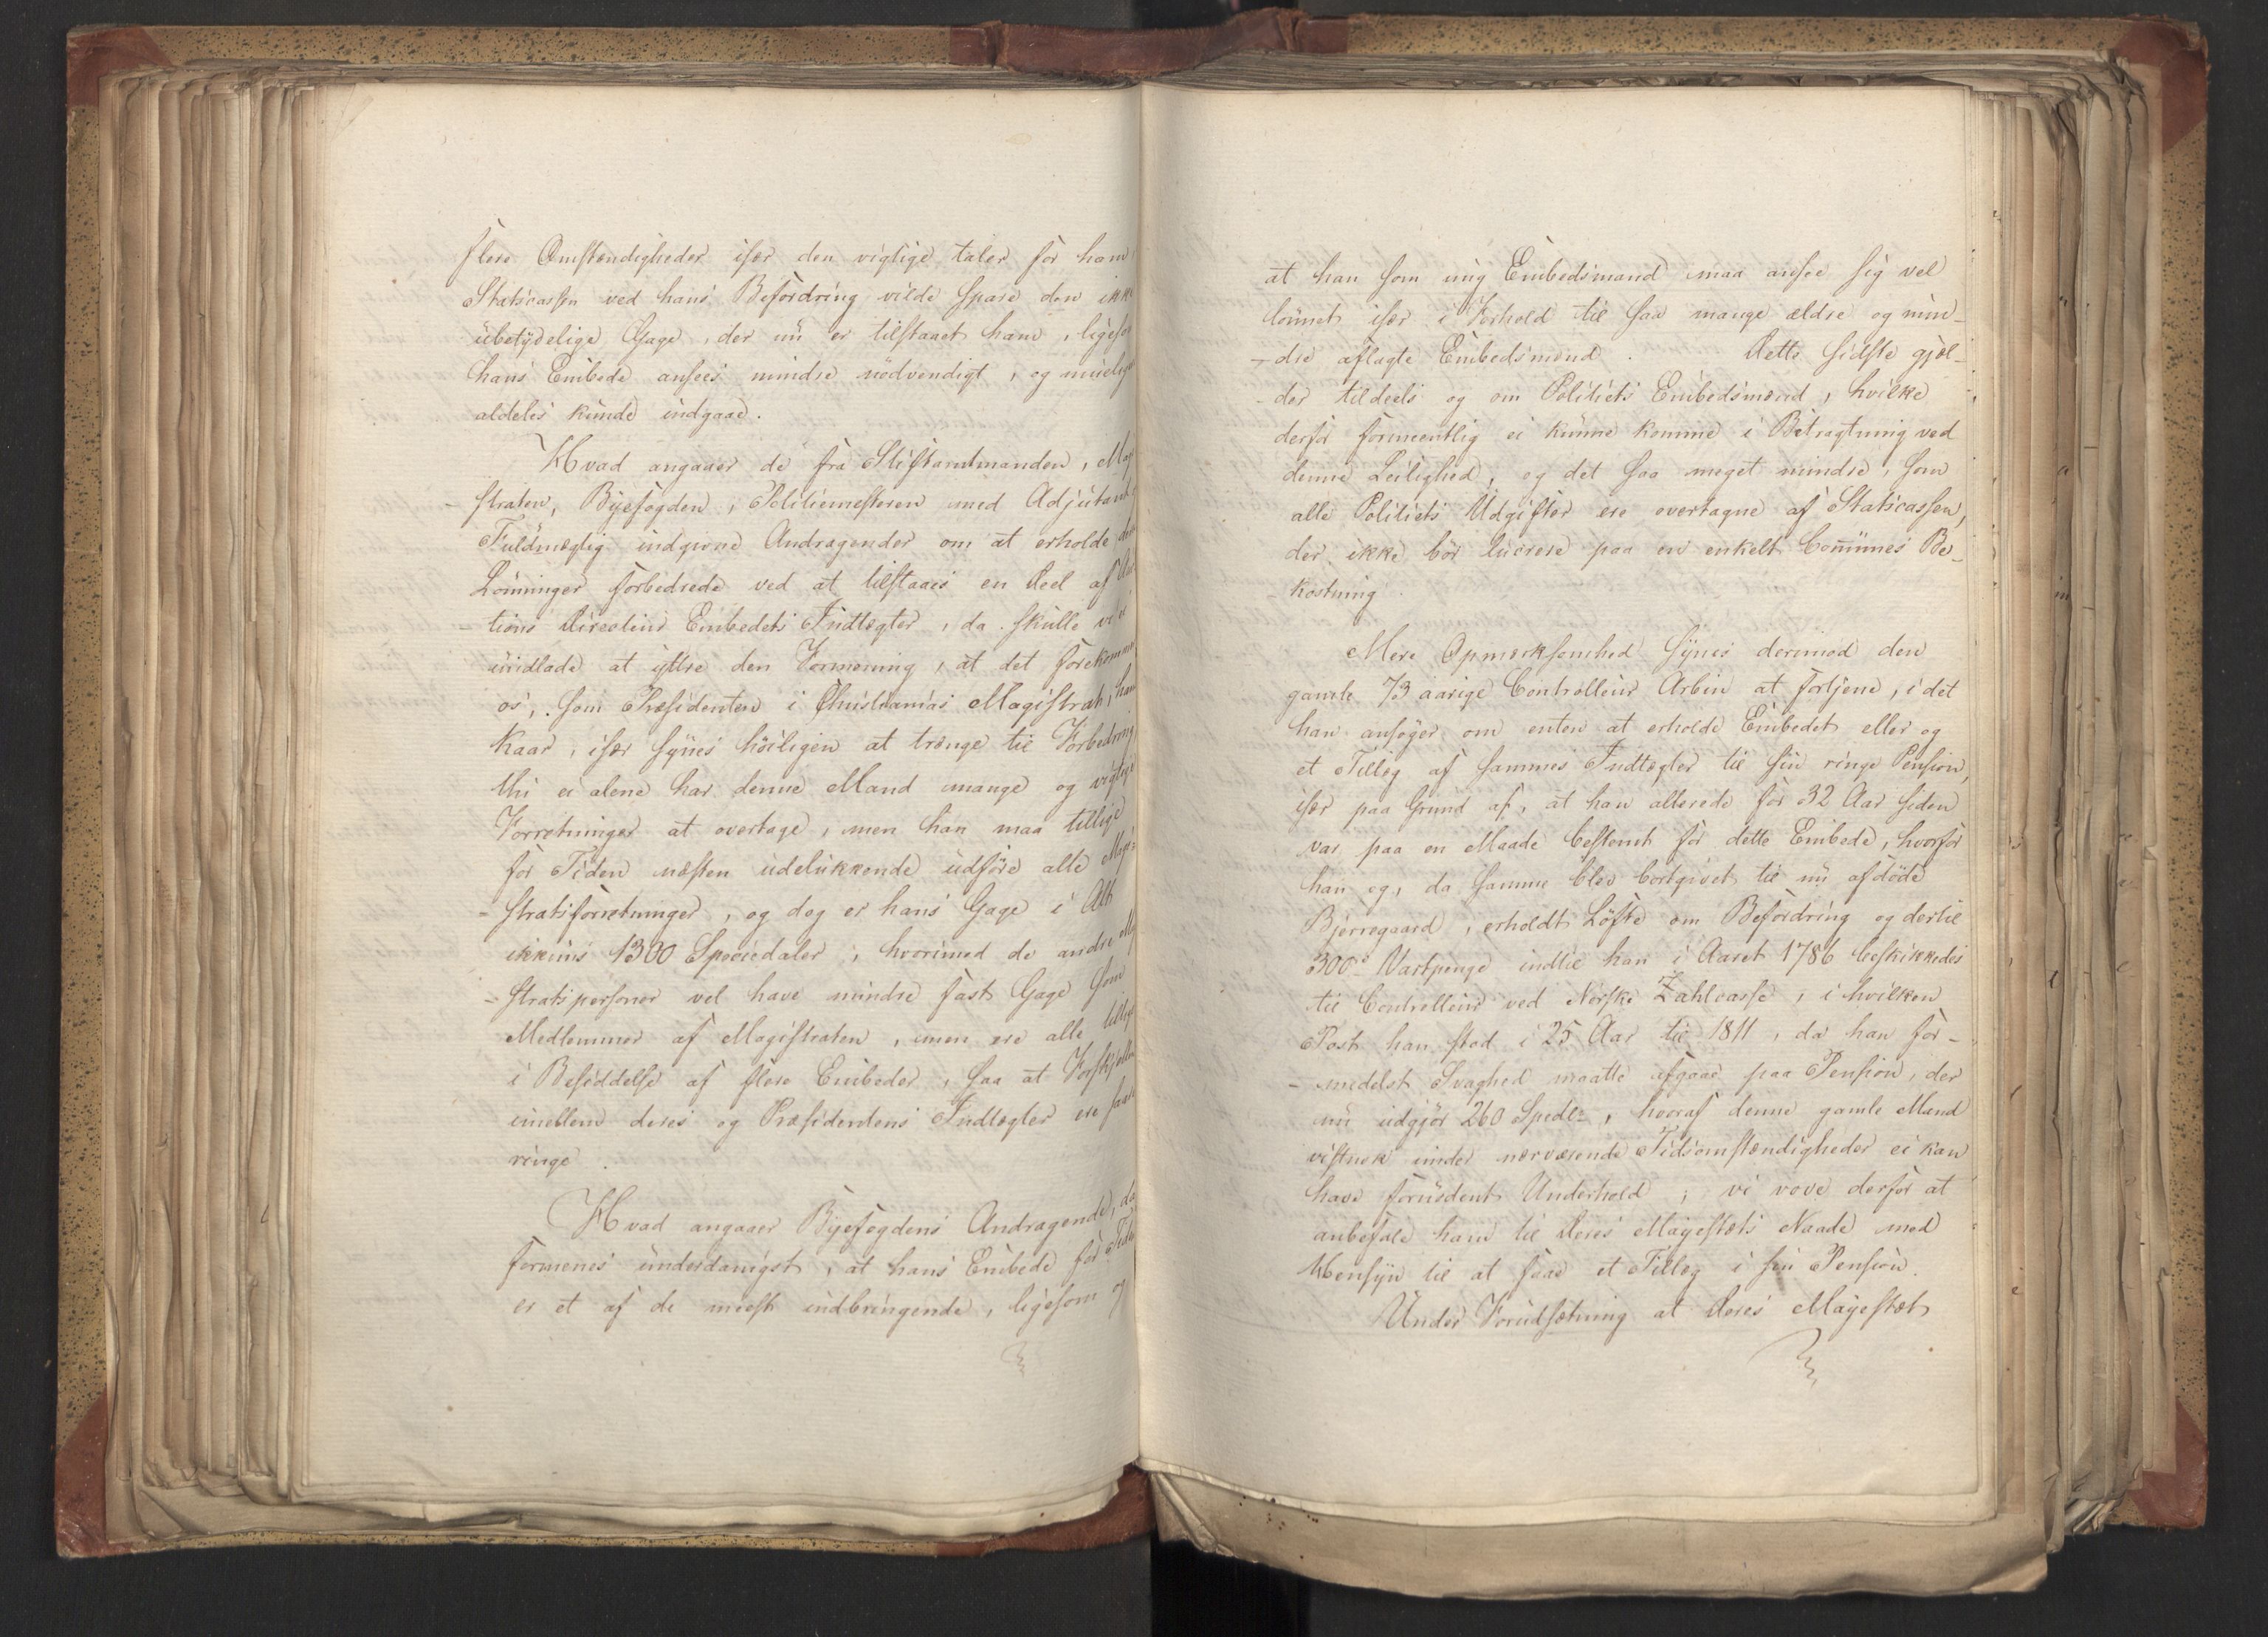 flere Omstændigheder især den vigtige taler for ham
Statscassen ved hans Befordring vilde spare den ikke
ubetydelige Gage, der nu er tilstaaet ham, ligesom
hans Embede ansees mindre nødvendigt, og mueligt
aldeles kunde indgaae.
Hvad angaaer de fra Stiftamtmanden, Magi
straten, Byefogden, Politiemesteren med Adjutant
Fuldmægtig indgivne Andragender om at erholde
Lønninger forbedrede ved at tilstaaes en Deel af
tions Directeur Embedets Indtægter, da skulle vi ei
undlade at yttre den Formening, at det forekommer
os, som Præsidenten i Christianias Magistrat, hans
Kaar, især synes høiligen at trænge til Forbedring
thi ei alene har denne Mand mange og vigtige
Forretninger at overtage, men han maa tillige
for Tiden næsten udelukkende udføre alle Magi-
stratsforretninger, og dog er hans Gage i Alt
ikkuns 1300 Speciedaler; hvorimod de andre Mag
stratspersoner vel have mindre fast Gage som
Medlemmer af Magistraten, men ere alle tillige
i Besiddelse af flere Embeder, saa at Forskjellen
imellem deres og Præsidentens Indtægter ere saare
ringe.
Hvad angaaer Byefogdens Andragende, da
formenes underdanigst, at hans Embede for Tiden
er et af de meest indbringende, ligesom og
at han som ung Embedsmand maa ansee sig vel
lønnet især i Forhold til saa mange ældre og min-
-dre aflagte Embedsmænd. Dette sidste gjæl-
-der tildeels og om Politiets Embedsmænd, hvilke
derfor formeentlig ei kunne komme i Betragtning ved
denne Leilighed, og det saa meget mindre, som
alle Politiets Udgifter ere overtagne af Statscassen,
der ikke bør lucrere paa en enkelt Com̅unes Be-
kostning.
Mere Opmærksomhed synes derimod den
gamle 73 aarige Controlleur Arbin at fortjene, i det
han ansøger om enten at erholde Embedet eller og
et Tillæg af sammes Indtægter til sin ringe Pension,
især paa Grund af, at han allerede for 32 Aar siden
var paa en Maade bestemt for dette Embede, hvorfor
han og, da samme blev bortgivet til nu afdøde
Bjerregaard, erholdt Løfte om Befordring og dertil
300 Vartpenge indtil han i Aaret 1786 beskikkedes
til Controlleur ved Norske Zahlcasse, i hvilken
Post han stod i 25 Aar til 1811, da han for-
-medelst Svaghed maatte afgaae paa Pension, der
nu udgjør 260 Spedlr, hvoraf denne gamle Mand
vistnok under nærværende Tidsomstændigheder ei kan
have fornødent Underhold; vi vove derfor at
anbefale ham til Deres Majestæts Naade med
Hensyn til at faae et Tillæg i sin Pension.
Under Forudsætning at Deres Majestæt